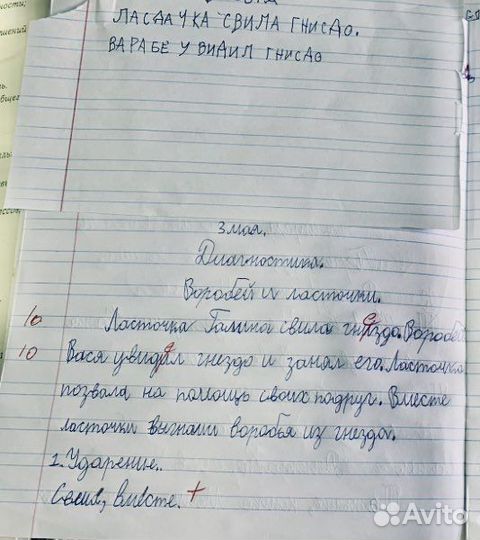 ЛАСДАЧКА СВИЛА ГНИСДО.
ВАРАБЕ У ВИДИЛ ГНИСДО
3 мая.
Диагностика.
Воробей и ласточки.
Ласточка Галина свила гнездо. Воробей
Вася увидел гнездо и занял его. Ласточка
позвала на помощь своих подруг. Вместе
ласточки выгнали воробья из гнезда.
1. Ударение.
вместе. +
Avito